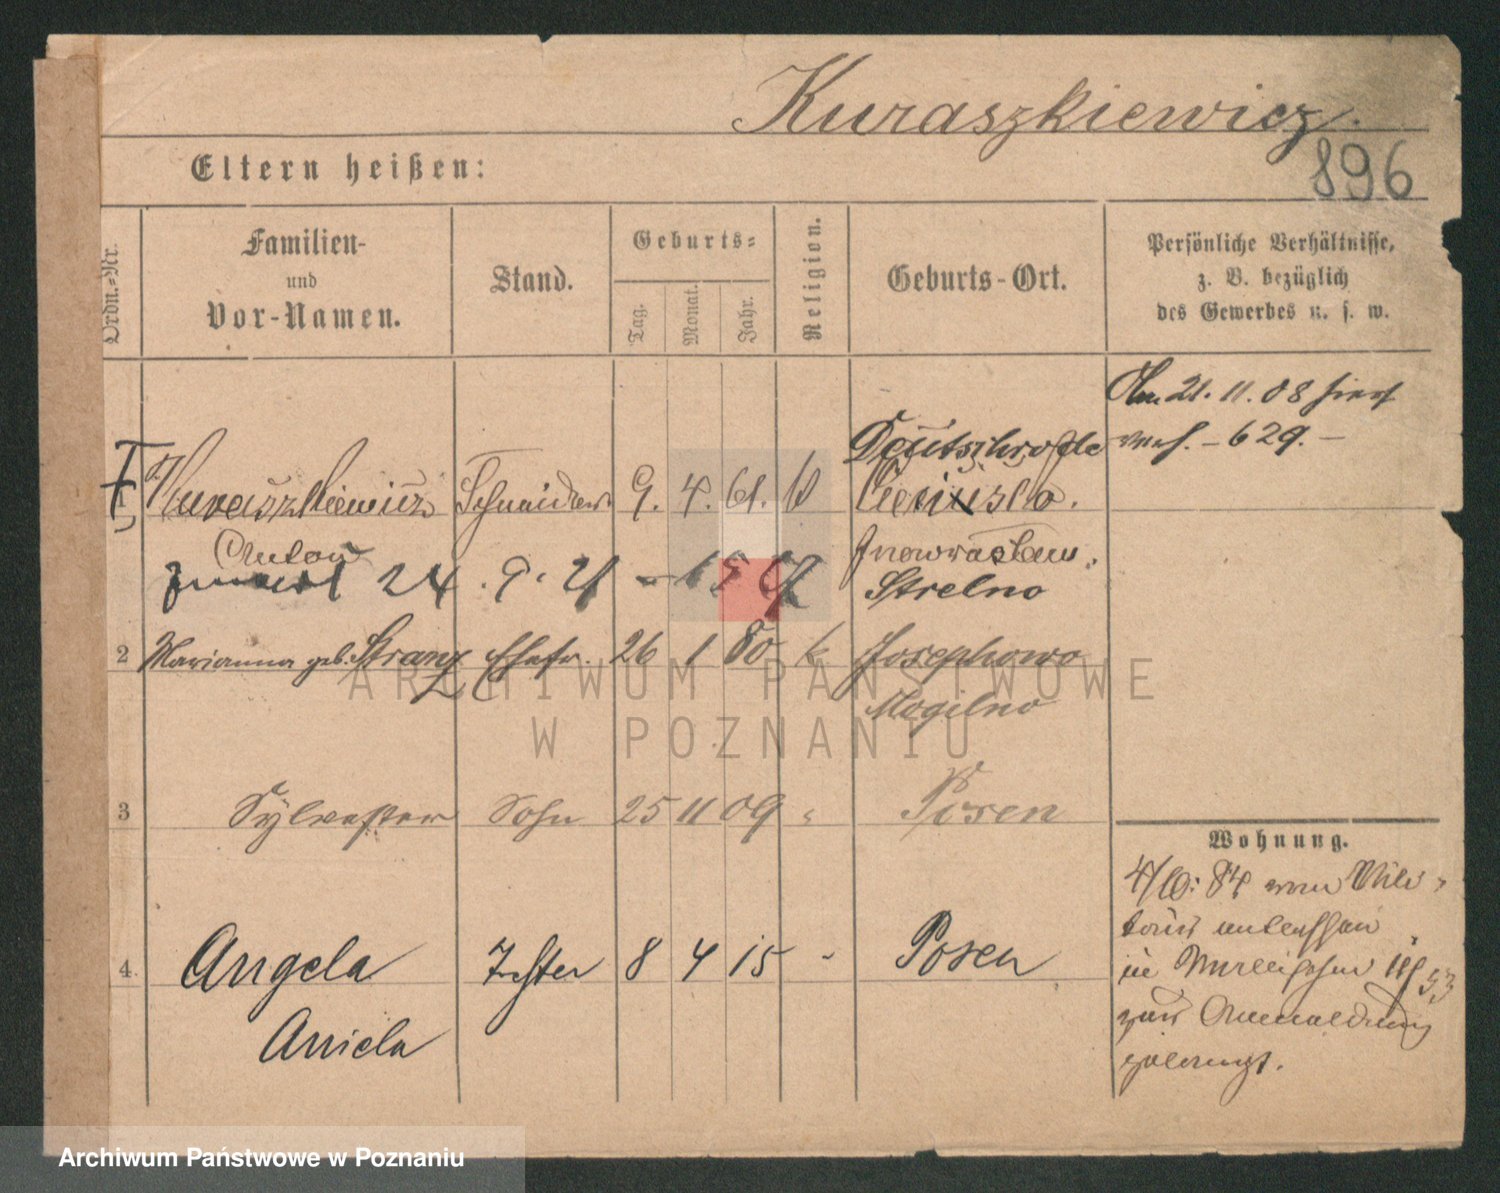 Kuraszkiewicz.
896
Eltern heißen:
Ordn.-Nr.
Familien-
und
Vor-Namen.
Stand.
Geburts-
Tag.
Monat.
Jahr.
Religion.
Geburts-Ort.
Persönliche Verhältnisse,
z. B. bezüglich
des Gewerbes u. s. w.
Am 21. 11. 08 hier
verh. – 629. –
1 Kuraszkiewicz Schneider 9. 4. 61. k
Anton
24. 9. 21
Inowrazlaw.
Strelno
2 Marianna geb. Stranz Ehefr. 26 1 80 k Josephowo
Mogilno
3 Sylvester Sohn 25 11 09 " Posen
4. Angela Tochter 8 4 15 - Posen
Aniela
Wohnung.
4/10. 84 vom Mili-
in
zur Anmeldung
gelangt.
ARCHIWUM PAŃSTWOWE
W POZNANIU
Archiwum Państwowe w Poznaniu